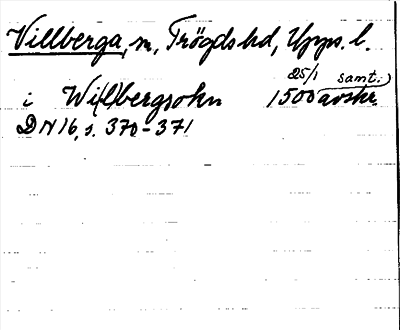 Villberga, sn, Trögds hd, Upps. l.
i Wi(l)bergsokn 25/1 1500 samt. avskr.
DN 16, s. 370-371